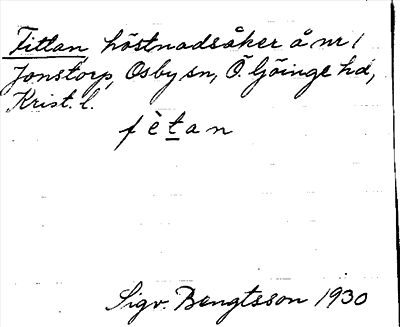 Fittan, höstnadsåker å nr 1
Jonstorp, Osby sn, Ö. Göinge hd,
Krist. l.
fètan
Sigv. Bengtsson 1930